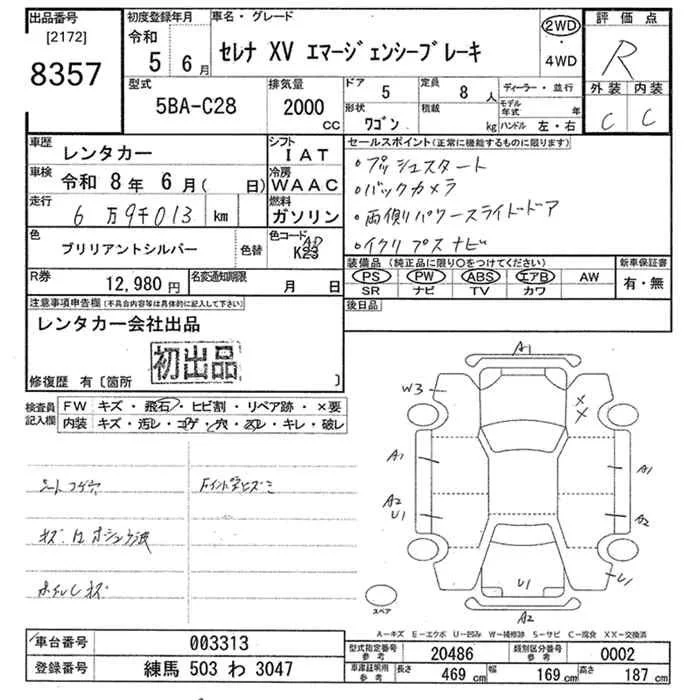 出品番号
[2172]
8357
初度登録年月
令和
5 6月
車名・グレード
セレナ XV エマージェンシーブレーキ
2WD
・
4WD
評価点
R
外装 内装
C C
型式
5BA-C28
排気量
2000
CC
ドア
5
形状
ワゴン
定員
8人
積載
kg
ディーラー・並行
モデル年式 年
ハンドル 左・右
車歴
レンタカー
シフト
IAT
車検
令和 8年 6月( 日)
冷房
WAAC
走行
6万9千013 km
燃料
ガソリン
色
ブリリアントシルバー
色替
色コード
K23
R券
12,980円
名変通知期限
月 日
セールスポイント(正常に機能するものに限ります)
・プッシュスタート
・バックカメラ
・両側パワースライドドア
・イクリプスナビ
装備品(純正品に限り○をつけてください)
PS PW ABS エアB AW
SR ナビ TV カワ
新車保証書
有・無
後日品
注意事項申告欄(不具合内容等は具体的に記入して下さい)
レンタカー会社出品
初出品
修復歴 有〔箇所 〕
検査員記入欄
FW キズ・飛石・ヒビ割・リペア跡・×要
内装 キズ・汚レ・コゲ・穴・スレ・キレ・破レ
シートコゲ穴
ホイルキズ
A1
W3
A1
A2
U1
A1
A2
U1
U1
A2
スペア
A−キズ E−エクボ U−凹み W−補修跡 S−サビ C−腐食 XX−交換済
車台番号
003313
登録番号
練馬 503 わ 3047
型式指定番号 参考
20486
類別区分番号 参考
0002
車庫証明用 参考
長さ 469 cm
幅 169 cm
高さ 187 cm